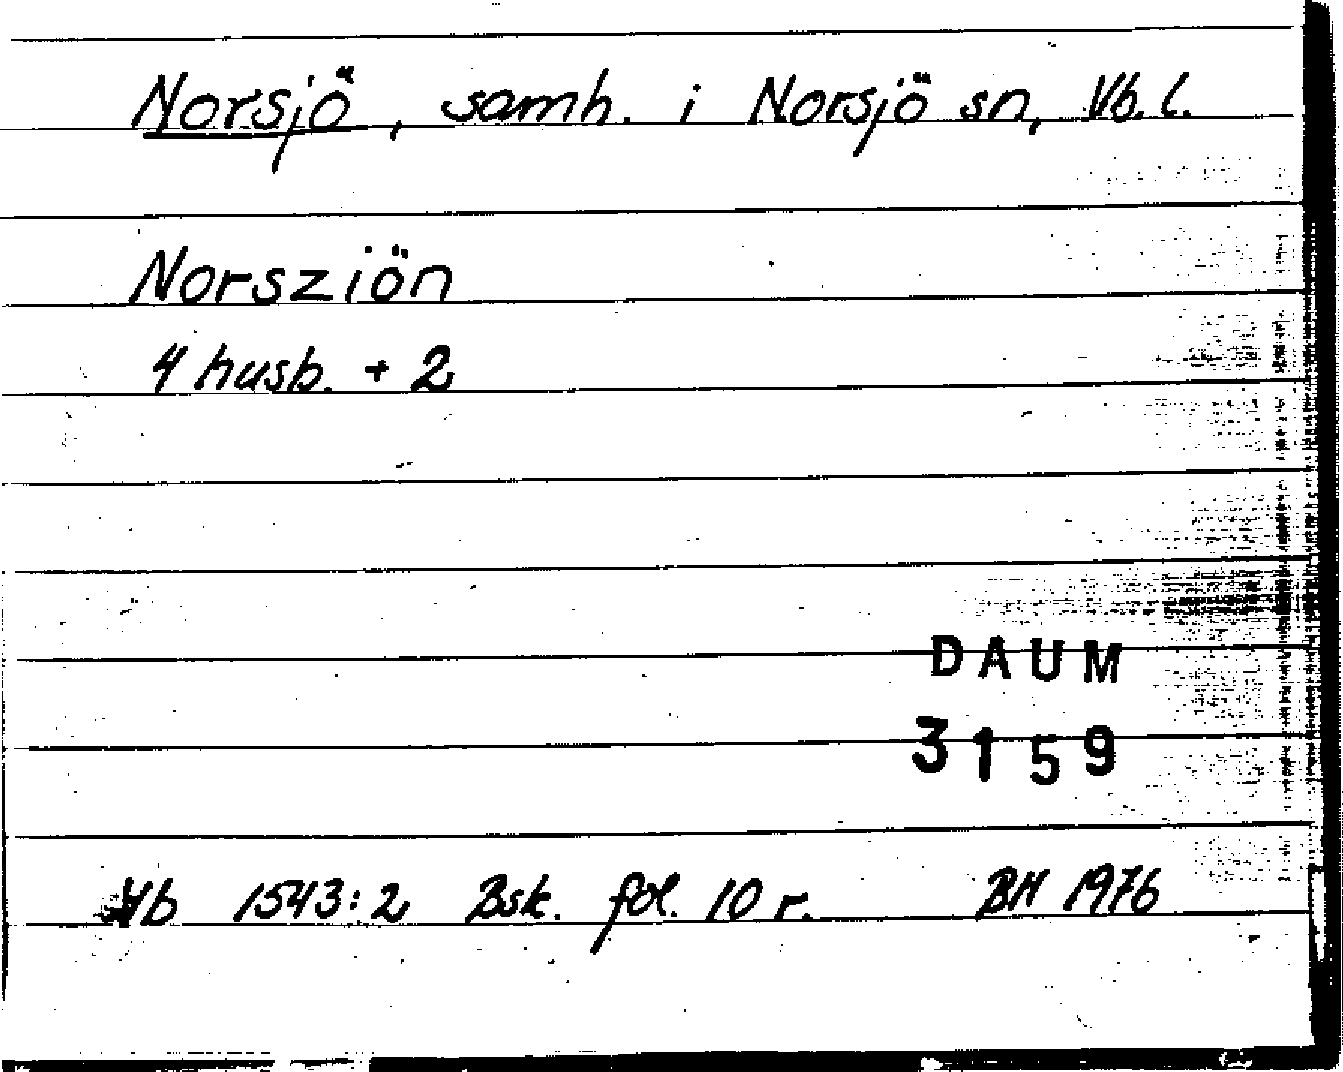 Norsjö, samh. i Norsjö sn, Vb. l.
Norsziön
4 husb. + 2
DAUM
3159
Vb 1543:2 Bsk. fol. 10 r. BH 1976